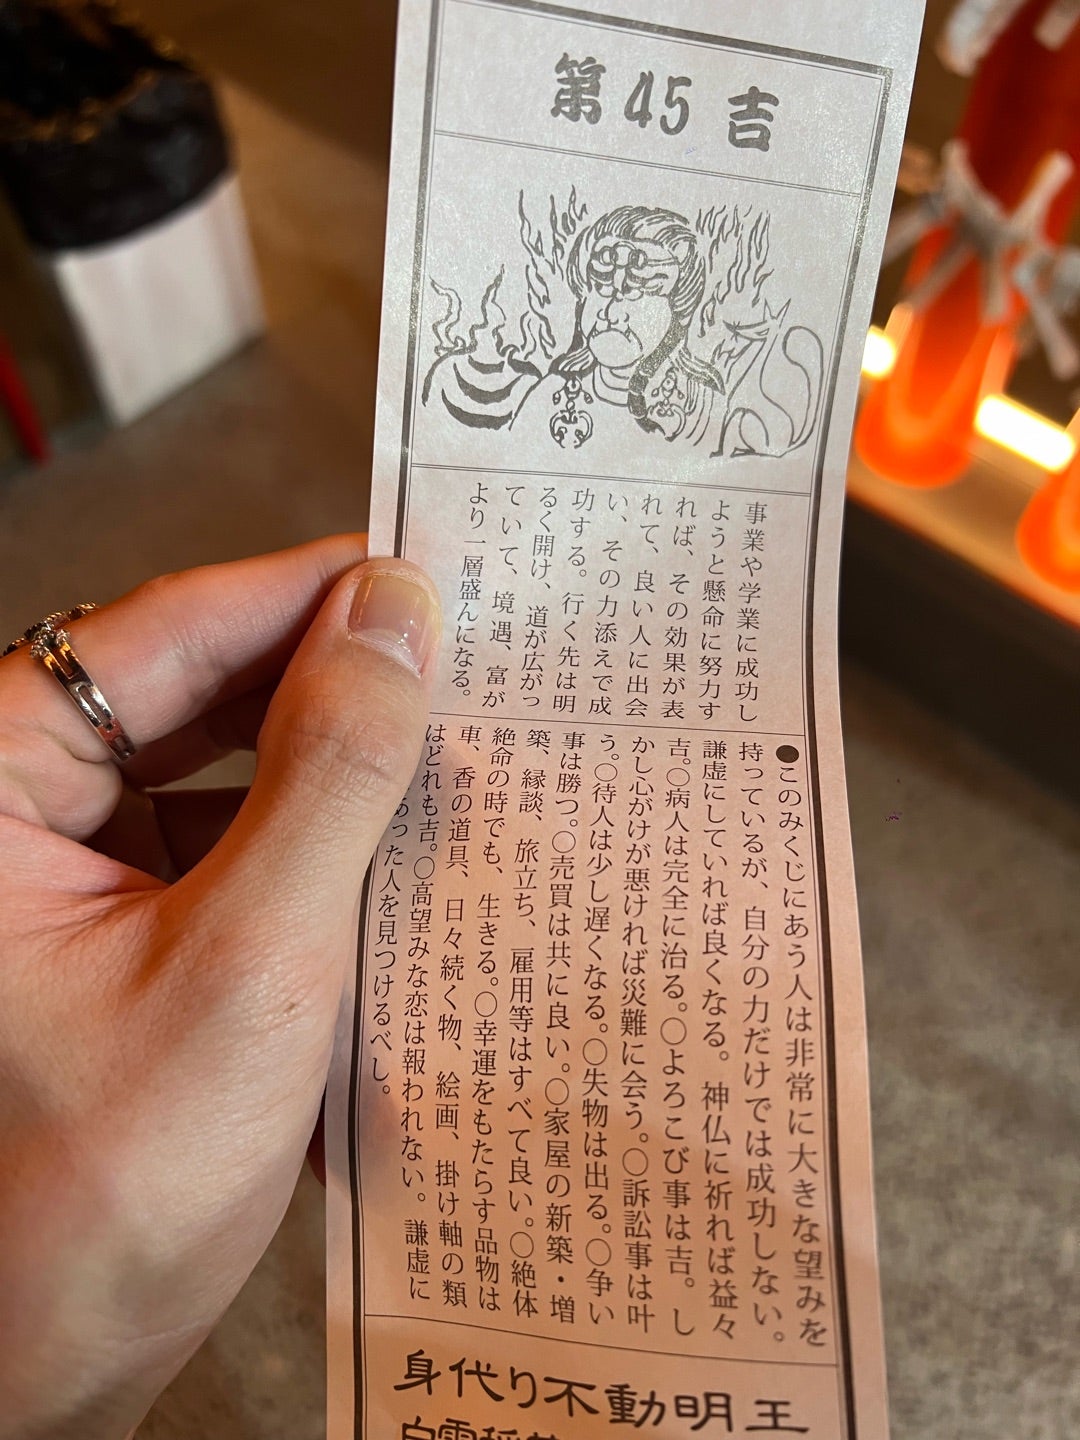 第45 吉
事業や学業に成功し
ようと懸命に努力す
れば、その効果が表
れて、良い人に出会
い、その力添えで成
功する。行く先は明
るく開け、道が広がっ
ていて、境遇、富が
より一層盛んになる。
●このみくじにあう人は非常に大きな望みを
持っているが、自分の力だけでは成功しない。
謙虚にしていれば良くなる。神仏に祈れば益々
吉。○病人は完全に治る。○よろこび事は吉。し
かし心がけが悪ければ災難に会う。○訴訟事は叶
う。○待人は少し遅くなる。○失物は出る。○争い
事は勝つ。○売買は共に良い。○家屋の新築・増
築、縁談、旅立ち、雇用等はすべて良い。○絶体
絶命の時でも、生きる。○幸運をもたらす品物は
車、香の道具、日々続く物、絵画、掛け軸の類
はどれも吉。○高望みな恋は報われない。謙虚に
あった人を見つけるべし。
身代り不動明王
白雲稲